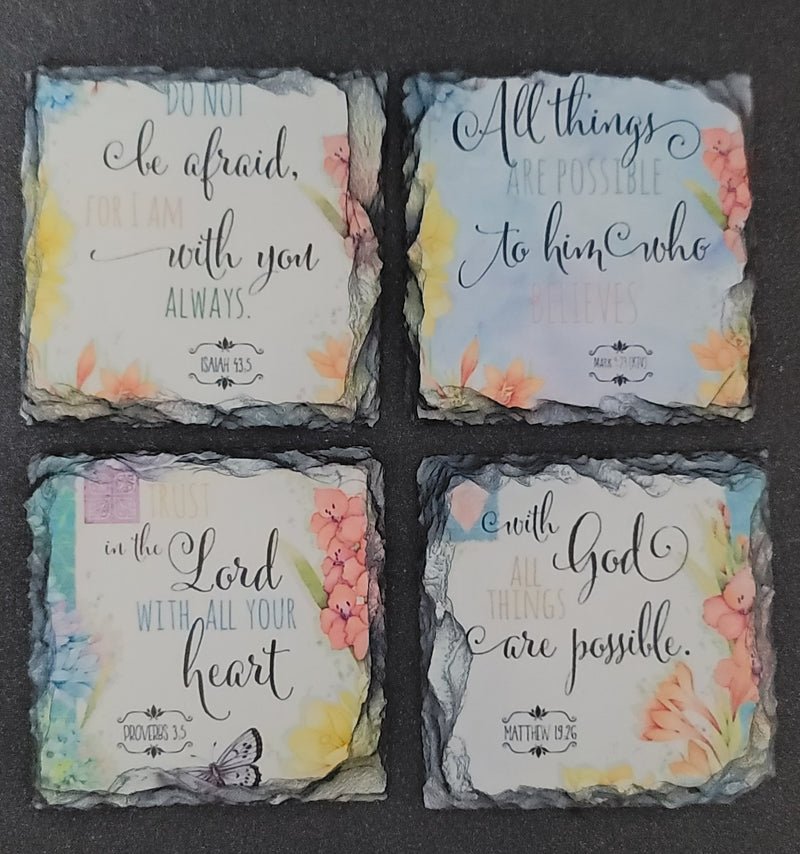 DO NOT
be afraid,
FOR I AM
with you
ALWAYS.
ISAIAH 43:5
All things
ARE POSSIBLE
to him who
BELIEVES
MARK 9:23
TRUST
in the Lord
WITH ALL YOUR
heart
PROVERBS 3:5
with God
ALL
THINGS
are possible.
MATTHEW 19:26